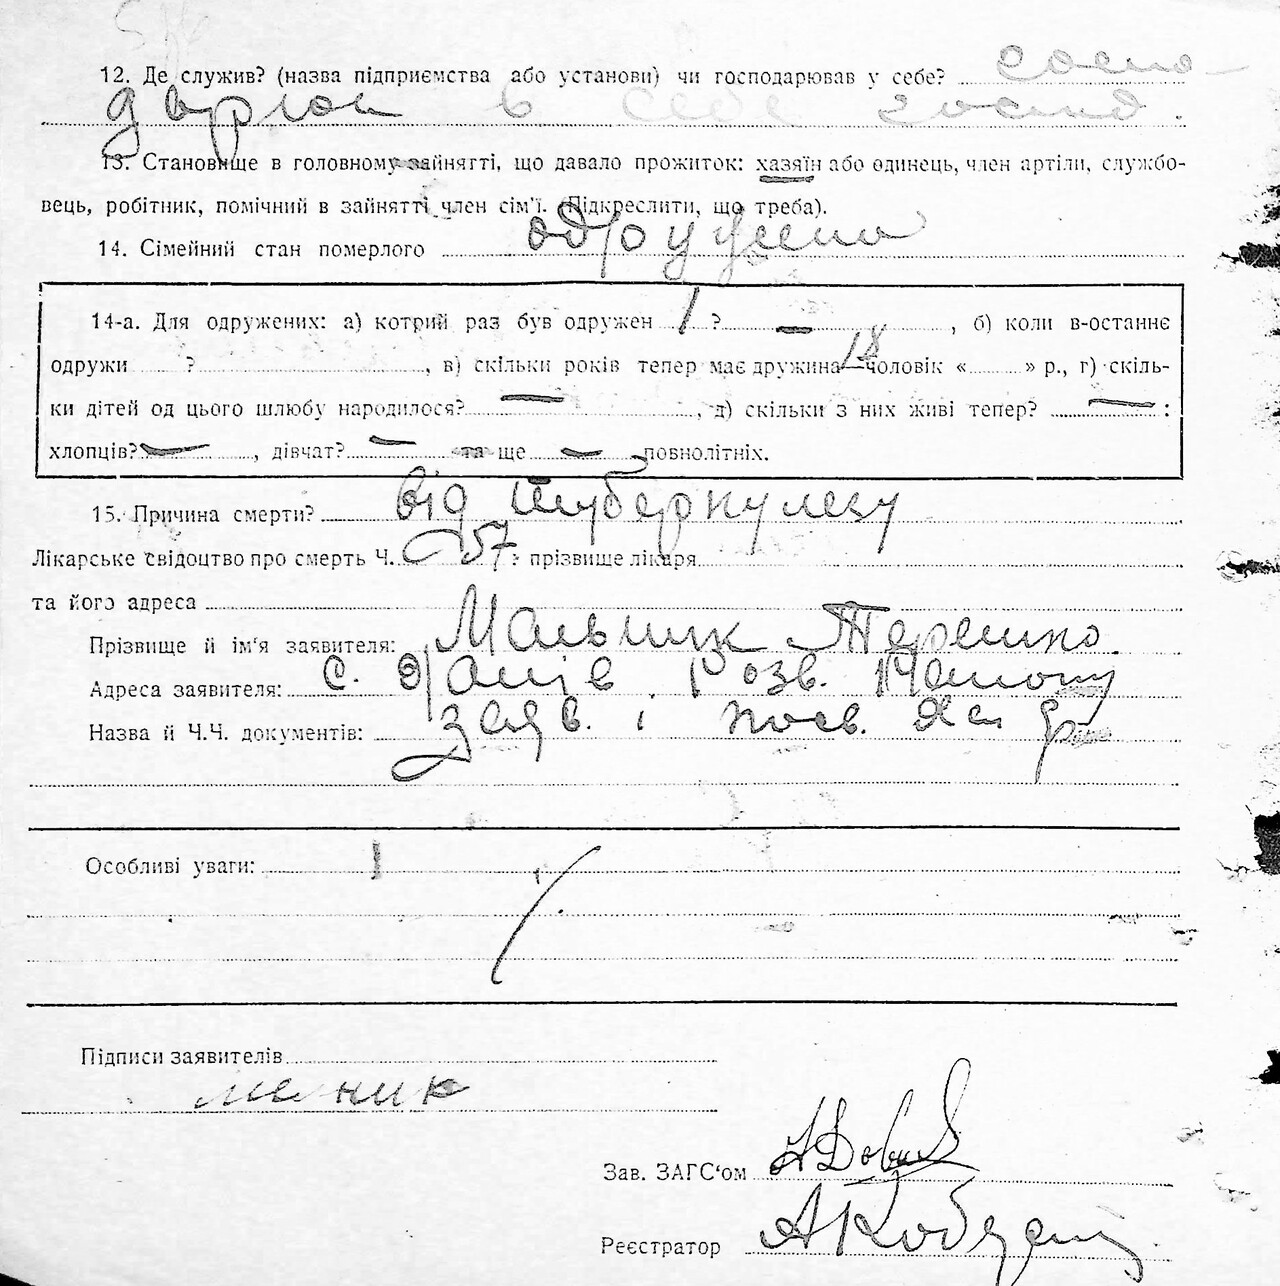 12. Де служив? (назва підприємства або установи) чи господарював у себе? госпо-
дарював в себе господ.
13. Становище в головному зайнятті, що давало прожиток: хазяїн або одинець, член артіли, службо-
вець, робітник, помічний в зайнятті член сім'ї. (Підкреслити, що треба).
14. Сімейний стан померлого одружена
14-а. Для одружених: а) котрий раз був одружен 1 ? —, б) коли в-останнє
одружи ?, в) скільки років тепер має дружина—чоловік «18» р., г) скіль-
ки дітей од цього шлюбу народилося? —, д) скільки з них живі тепер? — :
хлопців? —, дівчат? — та ще — повнолітніх.
15. Причина смерти? від туберкулезу
Лікарське свідоцтво про смерть Ч. 57 : прізвище лікаря
та його адреса
Прізвище й ім'я заявителя: Мельник Терешко.
Адреса заявителя: с.
Назва й Ч.Ч. документів: заяв. і посв.
Особливі уваги:
Підписи заявителів
мелник
Зав. ЗАГС'ом
Реєстратор